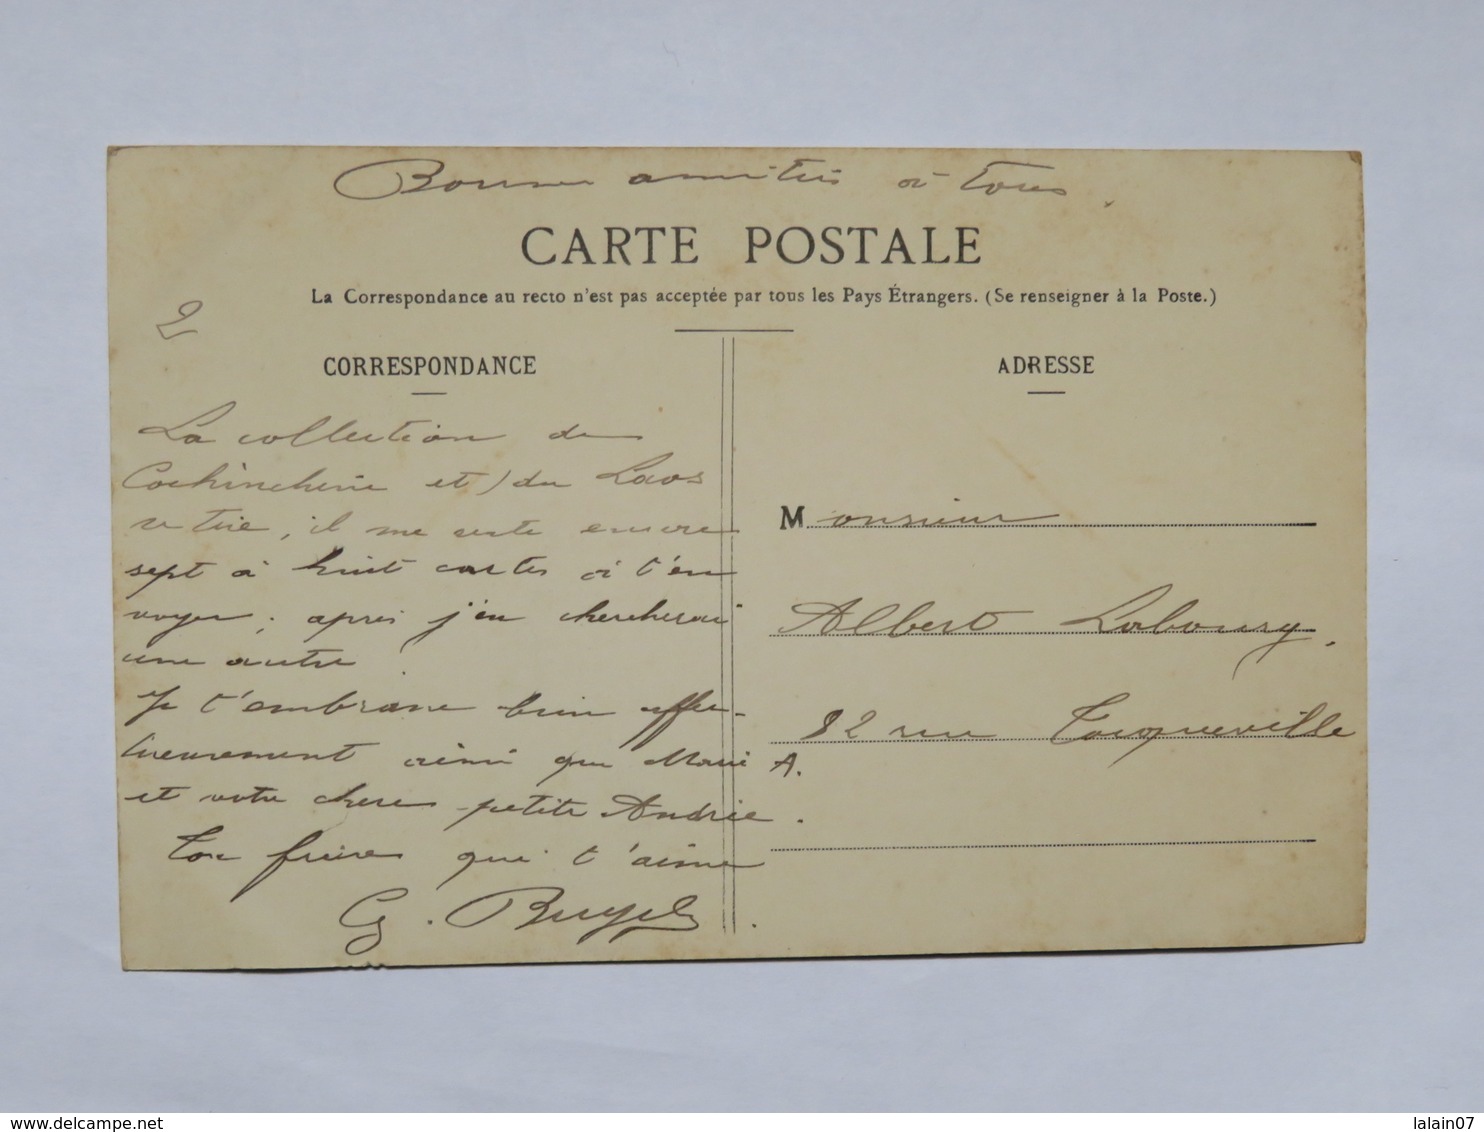 Bonnes amitiés à tous.
CARTE POSTALE
La Correspondance au recto n'est pas acceptée par tous les Pays Étrangers. (Se renseigner à la Poste.)
2
CORRESPONDANCE
La collection de
Cochinchine et du Laos
se tire, il me reste encore
sept à huit cartes à t'en
voyer ; après j'en chercherai
une autre.
Je t'embrasse bien affec-
tueusement ainsi que Marie
et votre chere petite Andrée.
Ton frère qui t'aime
G.
ADRESSE
Monsieur
Albert Laboury.
82 rue Tocqueville
A.
www.delcampe.net
lalain07